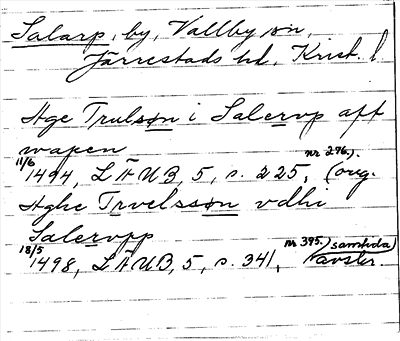 Salarp, by, Vallby sn,
Järrestads hd, Krist. l.
Age Trulsøn i Salerop aff
wapen
11/6 1494, LÄUB, 5, s. 225, nr 276). (orig.
Aghe Trvelssøn vdhi
Saleropp
18/5 1498, LÄUB, 5, s. 341, nr 395. (samtida) avskr.